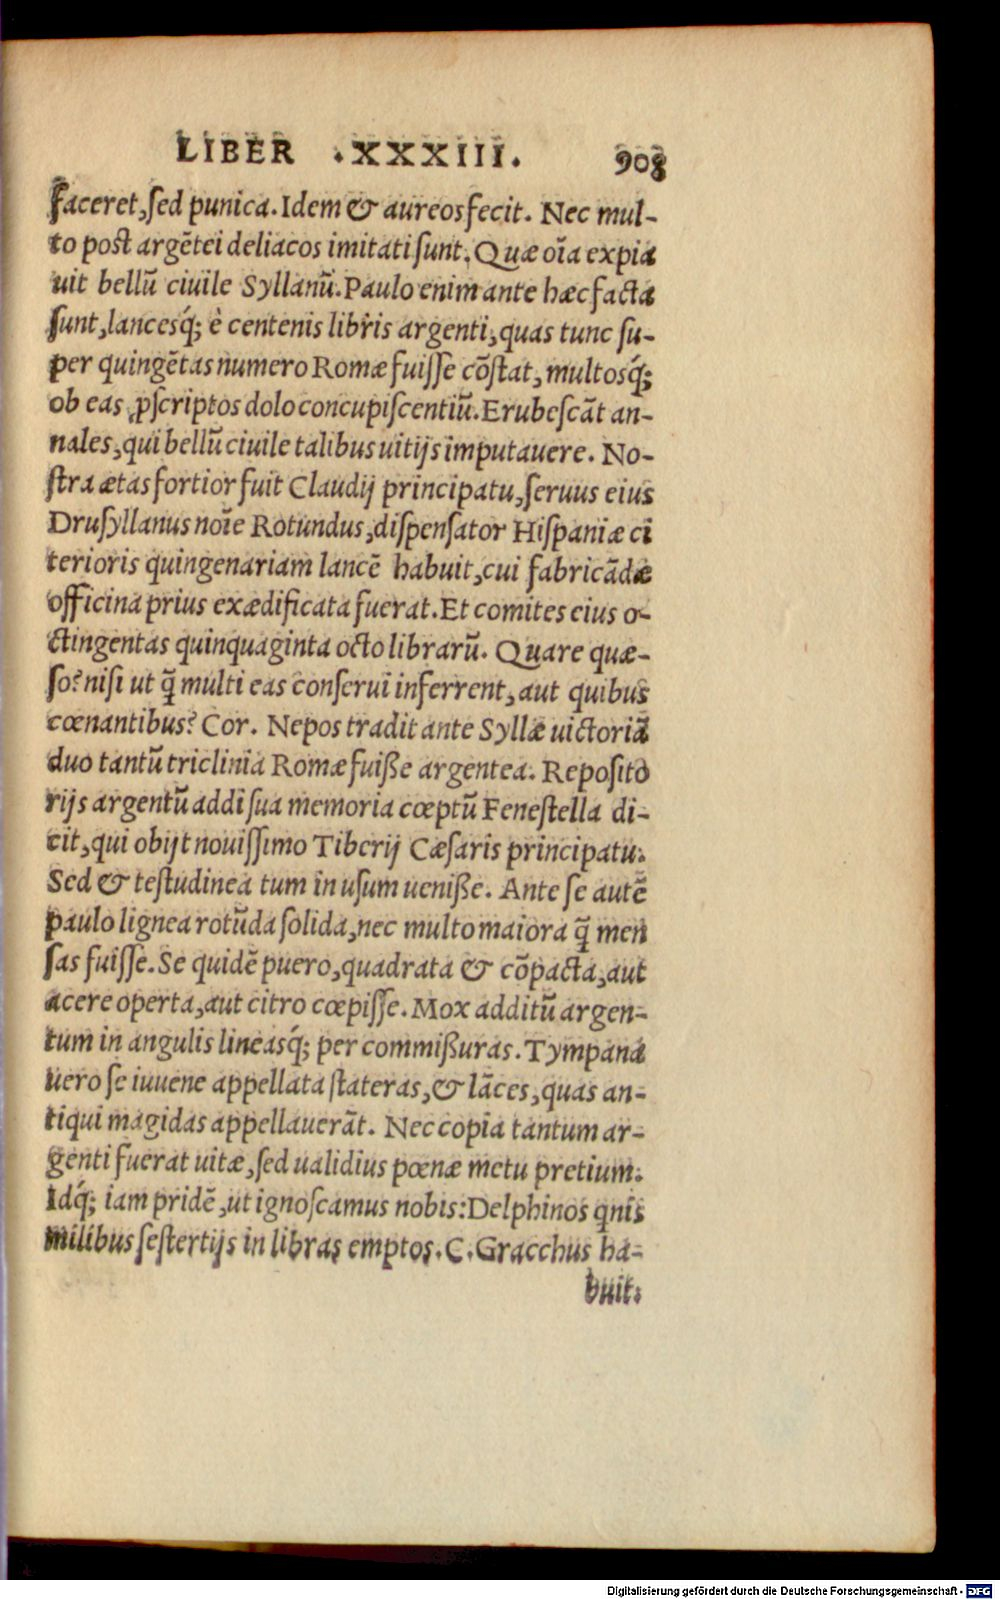 LIBER .XXXIII. 908
faceret, sed punica. Idem & aureos fecit. Nec mul-
to post argẽtei deliacos imitati sunt. Quæ oĩa expia
uit bellũ ciuile Syllanũ. Paulo enim ante hæc facta
sunt, lancesq́; è centenis libris argenti, quas tunc su-
per quingẽtas numero Romæ fuisse cõstat, multosq́;
ob eas ꝓscriptos dolo concupiscentiũ. Erubescãt an-
nales, qui bellũ ciuile talibus uitijs imputauere. No-
stra ætas fortior fuit Claudij principatu, seruus eius
Drusyllanus noĩe Rotundus, dispensator Hispaniæ ci
terioris quingenariam lancẽ habuit, cui fabricãdæ
officina prius exædificata fuerat. Et comites eius o-
ctingentas quinquaginta octo librarũ. Quare quæ-
so? nisi ut q̃ multi eas conserui inferrent, aut quibus
cœnantibus? Cor. Nepos tradit ante Syllæ uictoriã
duo tantũ triclinia Romæ fuiße argentea. Reposito
rijs argentũ addi sua memoria cœptũ Fenestella di-
cit, qui obijt nouissimo Tiberij Cæsaris principatu.
Sed & testudinea tum in usum ueniße. Ante se autẽ
paulo lignea rotũda solida, nec multo maiora q̃ men
sas fuisse. Se quidẽ puero, quadrata & cõpacta, aut
acere operta, aut citro cœpisse. Mox additũ argen-
tum in angulis lineasq́; per commißuras. Tympana
uero se iuuene appellata stateras, & lãces, quas an-
tiqui magidas appellauerãt. Nec copia tantum ar-
genti fuerat uitæ, sed ualidius pœnæ metu pretium.
Idq́; iam pridẽ, ut ignoscamus nobis: Delphinos qnis
milibus sestertijs in libras emptos. C. Gracchus ha-
buit.
Digitalisierung gefördert durch die Deutsche Forschungsgemeinschaft - DFG